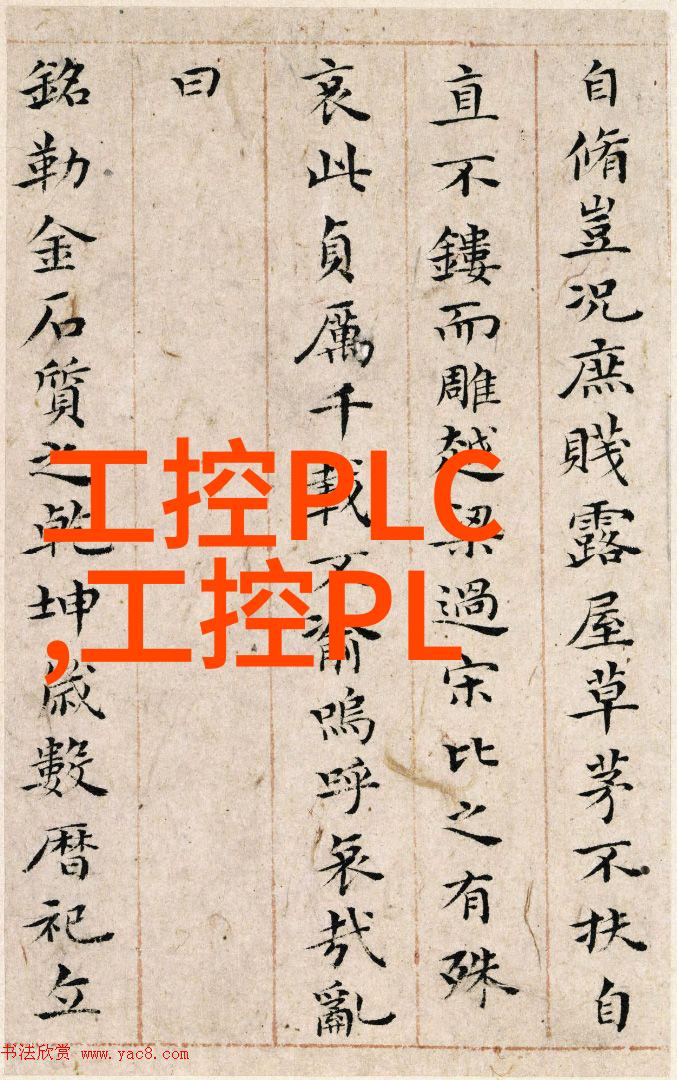 自脩豈况庶賤露屋草茅不扶自
直不鏤而雕越梁過宋比之有殊
哀此貞厲千載不渝嗚呼哀哉亂
曰
銘勒金石質之乾坤歲數暦祀立
工控PLC
,工控PL
书法欣赏 www.yac8.com